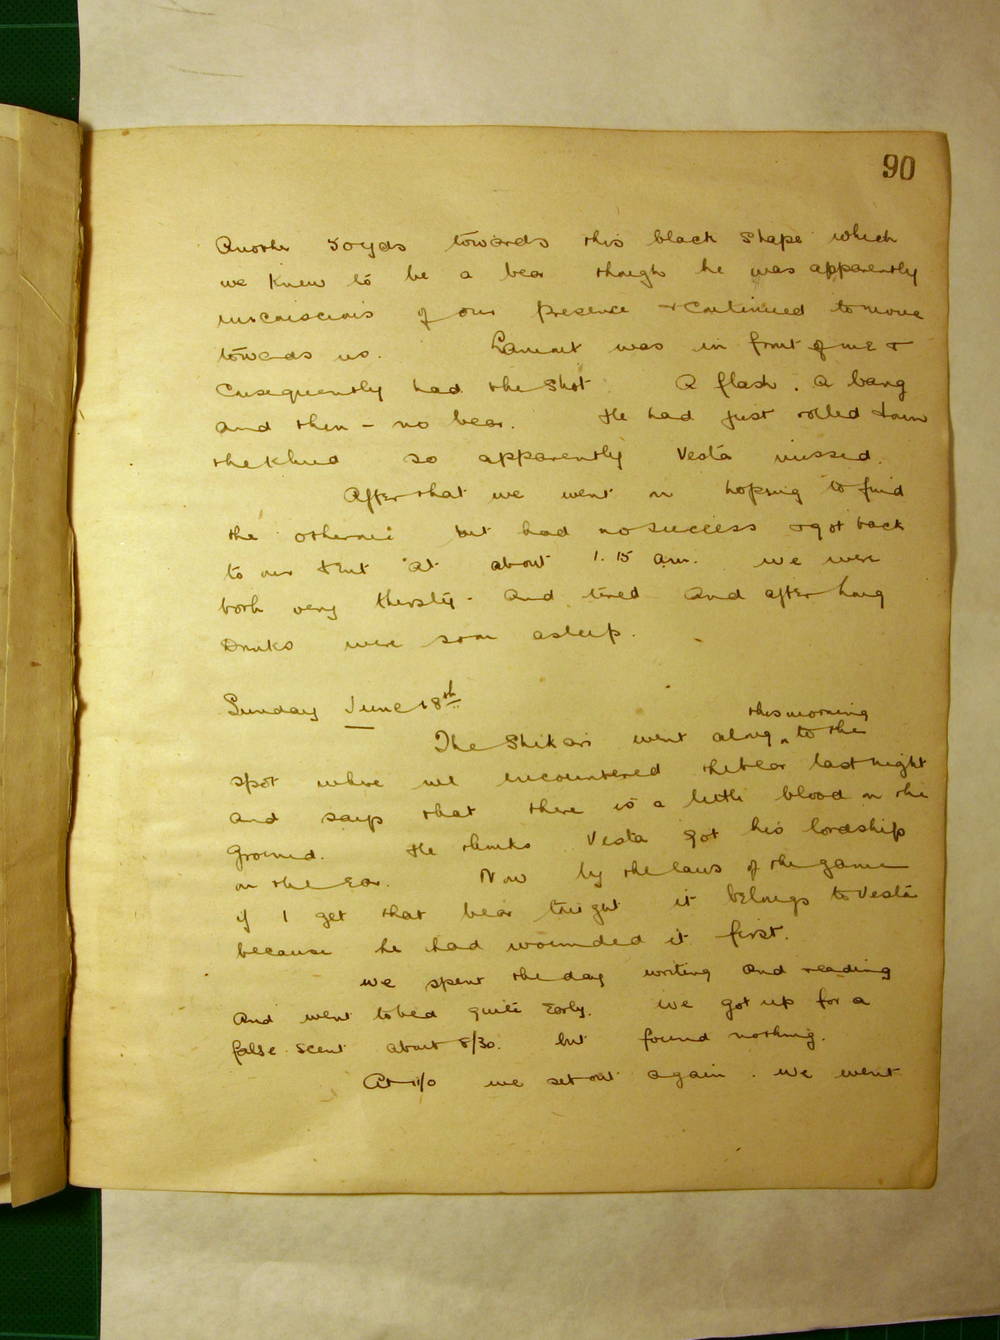 90
Another 50 yds towards this black shape which
we knew to be a bear though he was apparently
unconscious of our presence & continued to move
towards us. Lamont was in front of me &
consequently had the shot A flash. A bang
and then - no bear. He had just rolled down
the khud so apparently Vesta missed.
After that we went on hoping to find
the other but had no success & got back
to our tent at about 1.15 am. we were
both very thirsty - and tired and after long
Drinks were soon asleep.
Sunday June 18th
this morning
The Shikari went along ^ to the
spot where we encountered the bear last night
and says that there is a little blood on the
ground. He thinks Vesta got his lordship
on the Ear. Now by the laws of the game
if I get that bear tonight it belongs to Vesta
because he had wounded it first.
we spent the day writing and reading
and went to bed quite Early. we got up for a
false scent about 8/30. but found nothing.
At 11/0 we set out again. we went